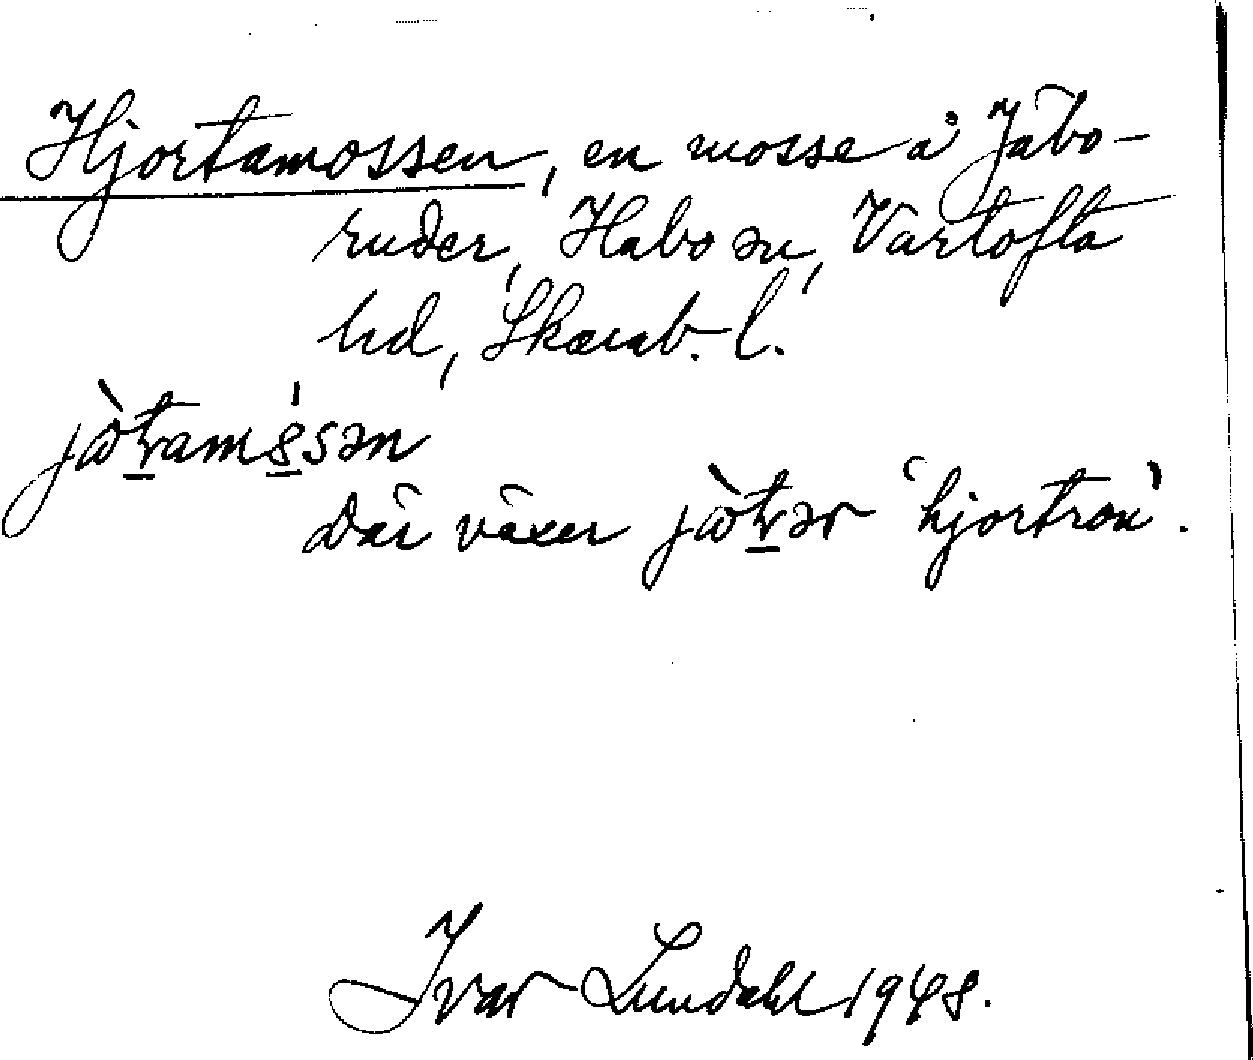 Hjortamossen, en mosse å Jäbo-
ruder, Habo sn, Vartofta
hd, Skarab. l.
Där växer 'hjortron'.
Ivar Lundahl 1948.